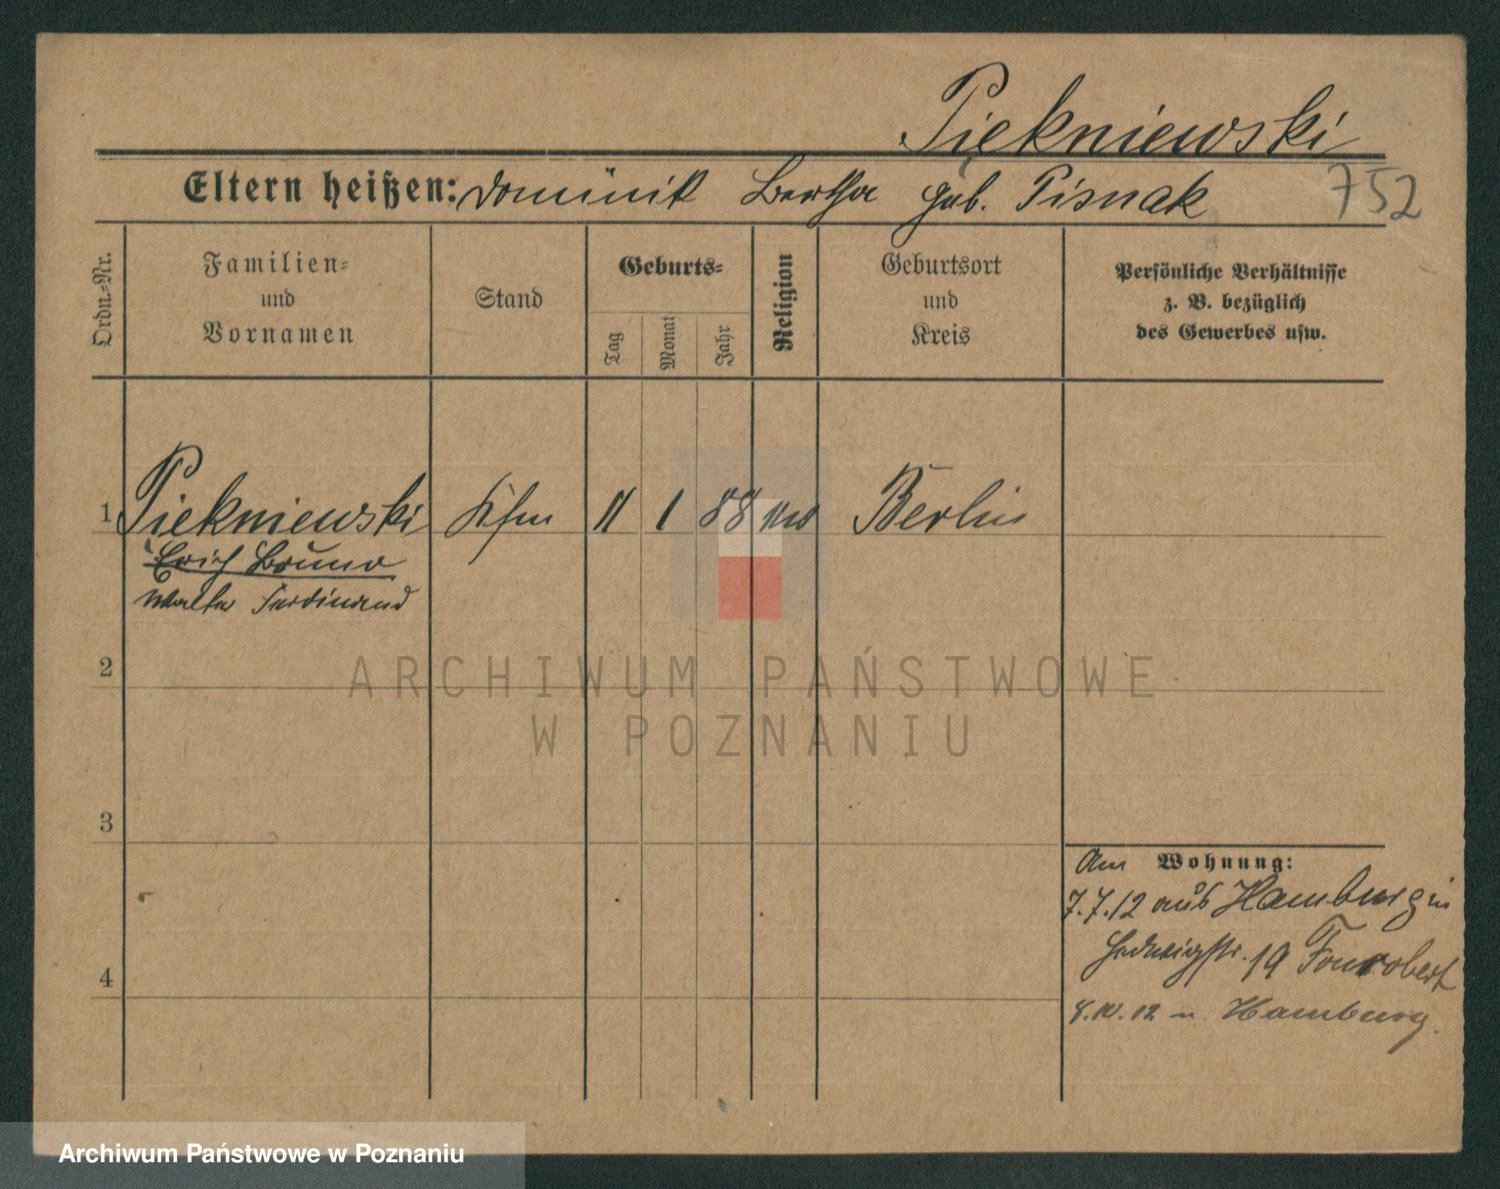 Piekniewski
Eltern heißen: Dominik Bertha geb. Pisnak
752
Ordn.-Nr.
Familien-
und
Vornamen
Stand
Geburts-
Tag
Monat
Jahr
Religion
Geburtsort
und
Kreis
Persönliche Verhältnisse
z. B. bezüglich
des Gewerbes usw.
1 Piekniewski Kfm 11 1 88 Berlin
Erich Bruno
Walter Ferdinand
2
3
4
Am Wohnung:
7.7.12 aus Hamburg in
Hedwigstr. 19 Fourobert
8.10.12 n. Hamburg.
ARCHIWUM PAŃSTWOWE
W POZNANIU
Archiwum Państwowe w Poznaniu